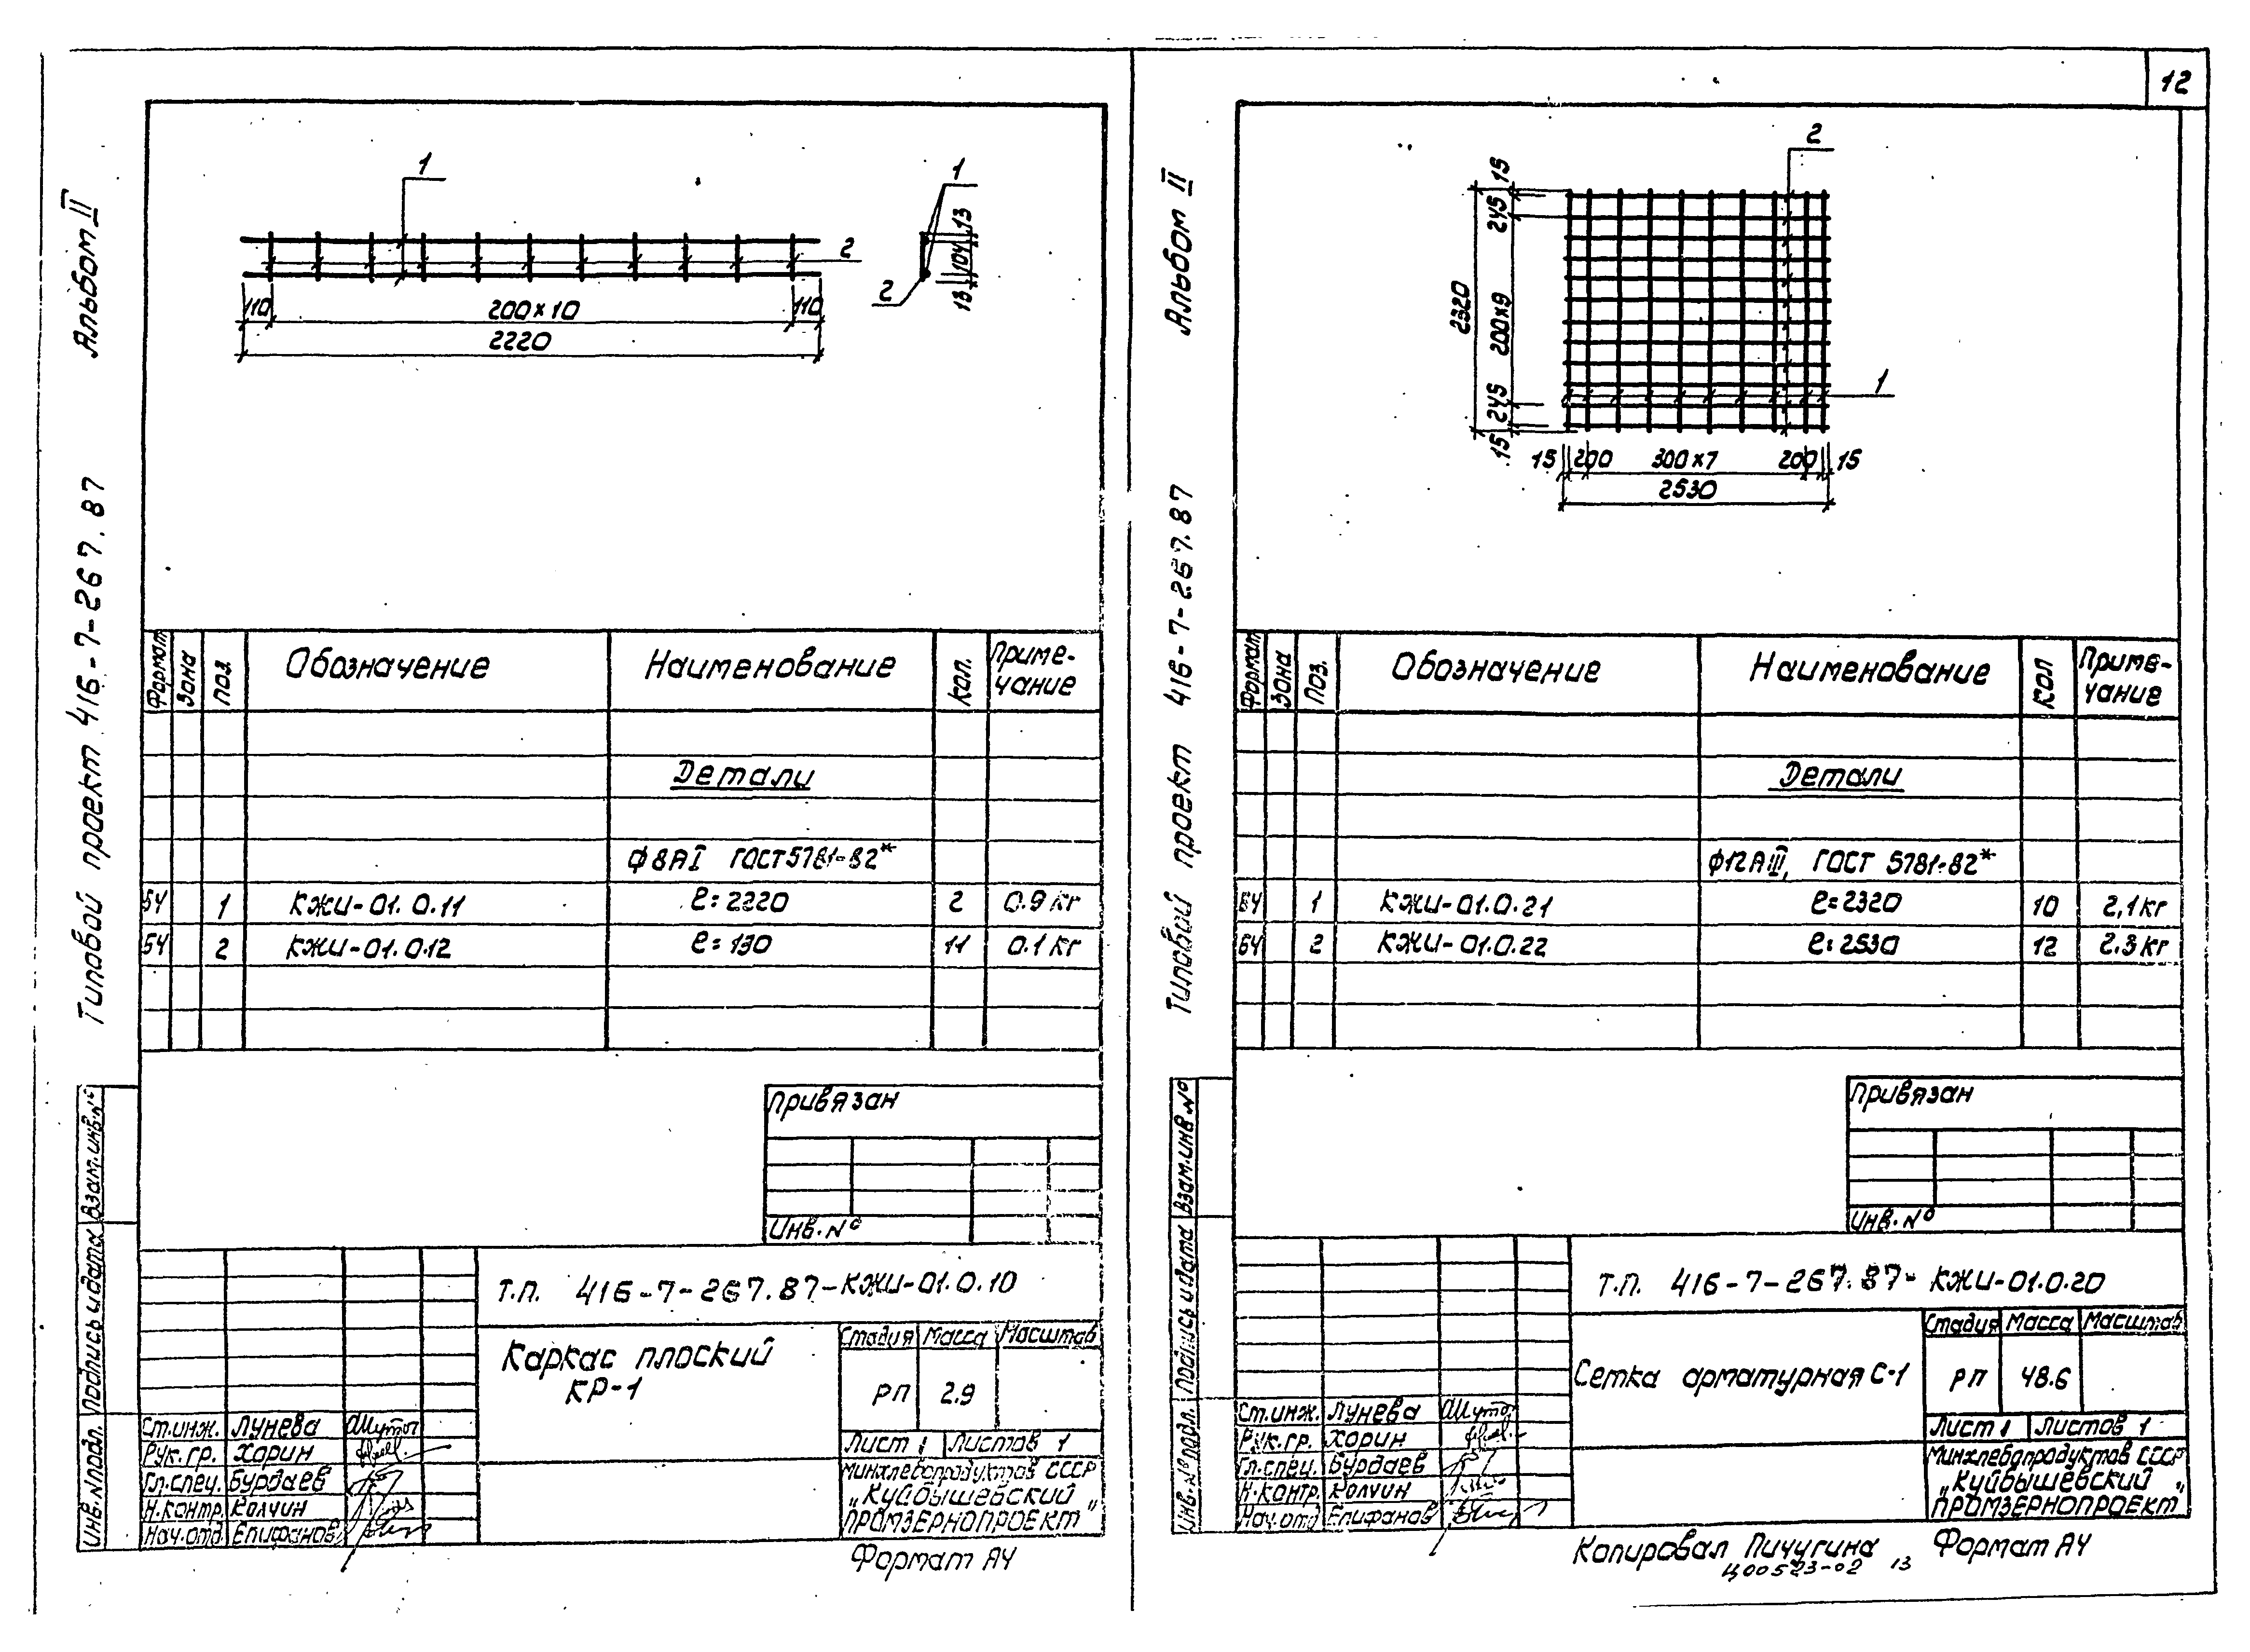 12
Альбом II
Типовой проект 416-7-267.87
1
2
110
200×10
110
2220
1
2
13
104
13
Формат
Зона
Поз.
Обозначение
Наименование
Кол.
Приме-
чание
Детали
Ф8АI ГОСТ 5781-82*
БЧ 1 КЖИ-01.0.11 ℓ=2220 2 0.9 кг
БЧ 2 КЖИ-01.0.12 ℓ=130 11 0.1 кг
Привязан
Инв.№
Взам.инв.№
Подпись и дата
Инв.№подл.
Т.П. 416-7-267.87-КЖИ-01.0.10
Каркас плоский
КР-1
Стадия Масса Масштаб
РП 2.9
Лист 1 Листов 1
Минхлебопродуктов СССР
„Куйбышевский
Промзернопроект"
Ст.инж. Лунева
Рук.гр. Хорин
Гл.спец. Бурдаев
Н.контр. Колчин
Нач.отд. Епифанов
Формат А4
Альбом II
Типовой проект 416-7-267.87
2
1
15
245
200×9
245
15
2320
15 200 300×7 200 15
2530
Формат
Зона
Поз.
Обозначение
Наименование
Кол
Приме-
чание
Детали
Ф12АIII, ГОСТ 5781-82*
БЧ 1 КЖИ-01.0.21 ℓ=2320 10 2,1 кг
БЧ 2 КЖИ-01.0.22 ℓ=2530 12 2.3 кг
Привязан
Инв.№
Взам.инв.№
Подпись и дата
Инв.№подл.
Т.П. 416-7-267.87-КЖИ-01.0.20
Сетка арматурная С-1
Стадия Масса Масштаб
РП 48.6
Лист 1 Листов 1
Минхлебопродуктов СССР
„Куйбышевский
Промзернопроект"
Ст.инж. Лунева
Рук.гр. Хорин
Гл.спец. Бурдаев
Н.контр. Колчин
Нач.отд Епифанов
Копировал Пичугина Формат А4
Ц00523-02 13